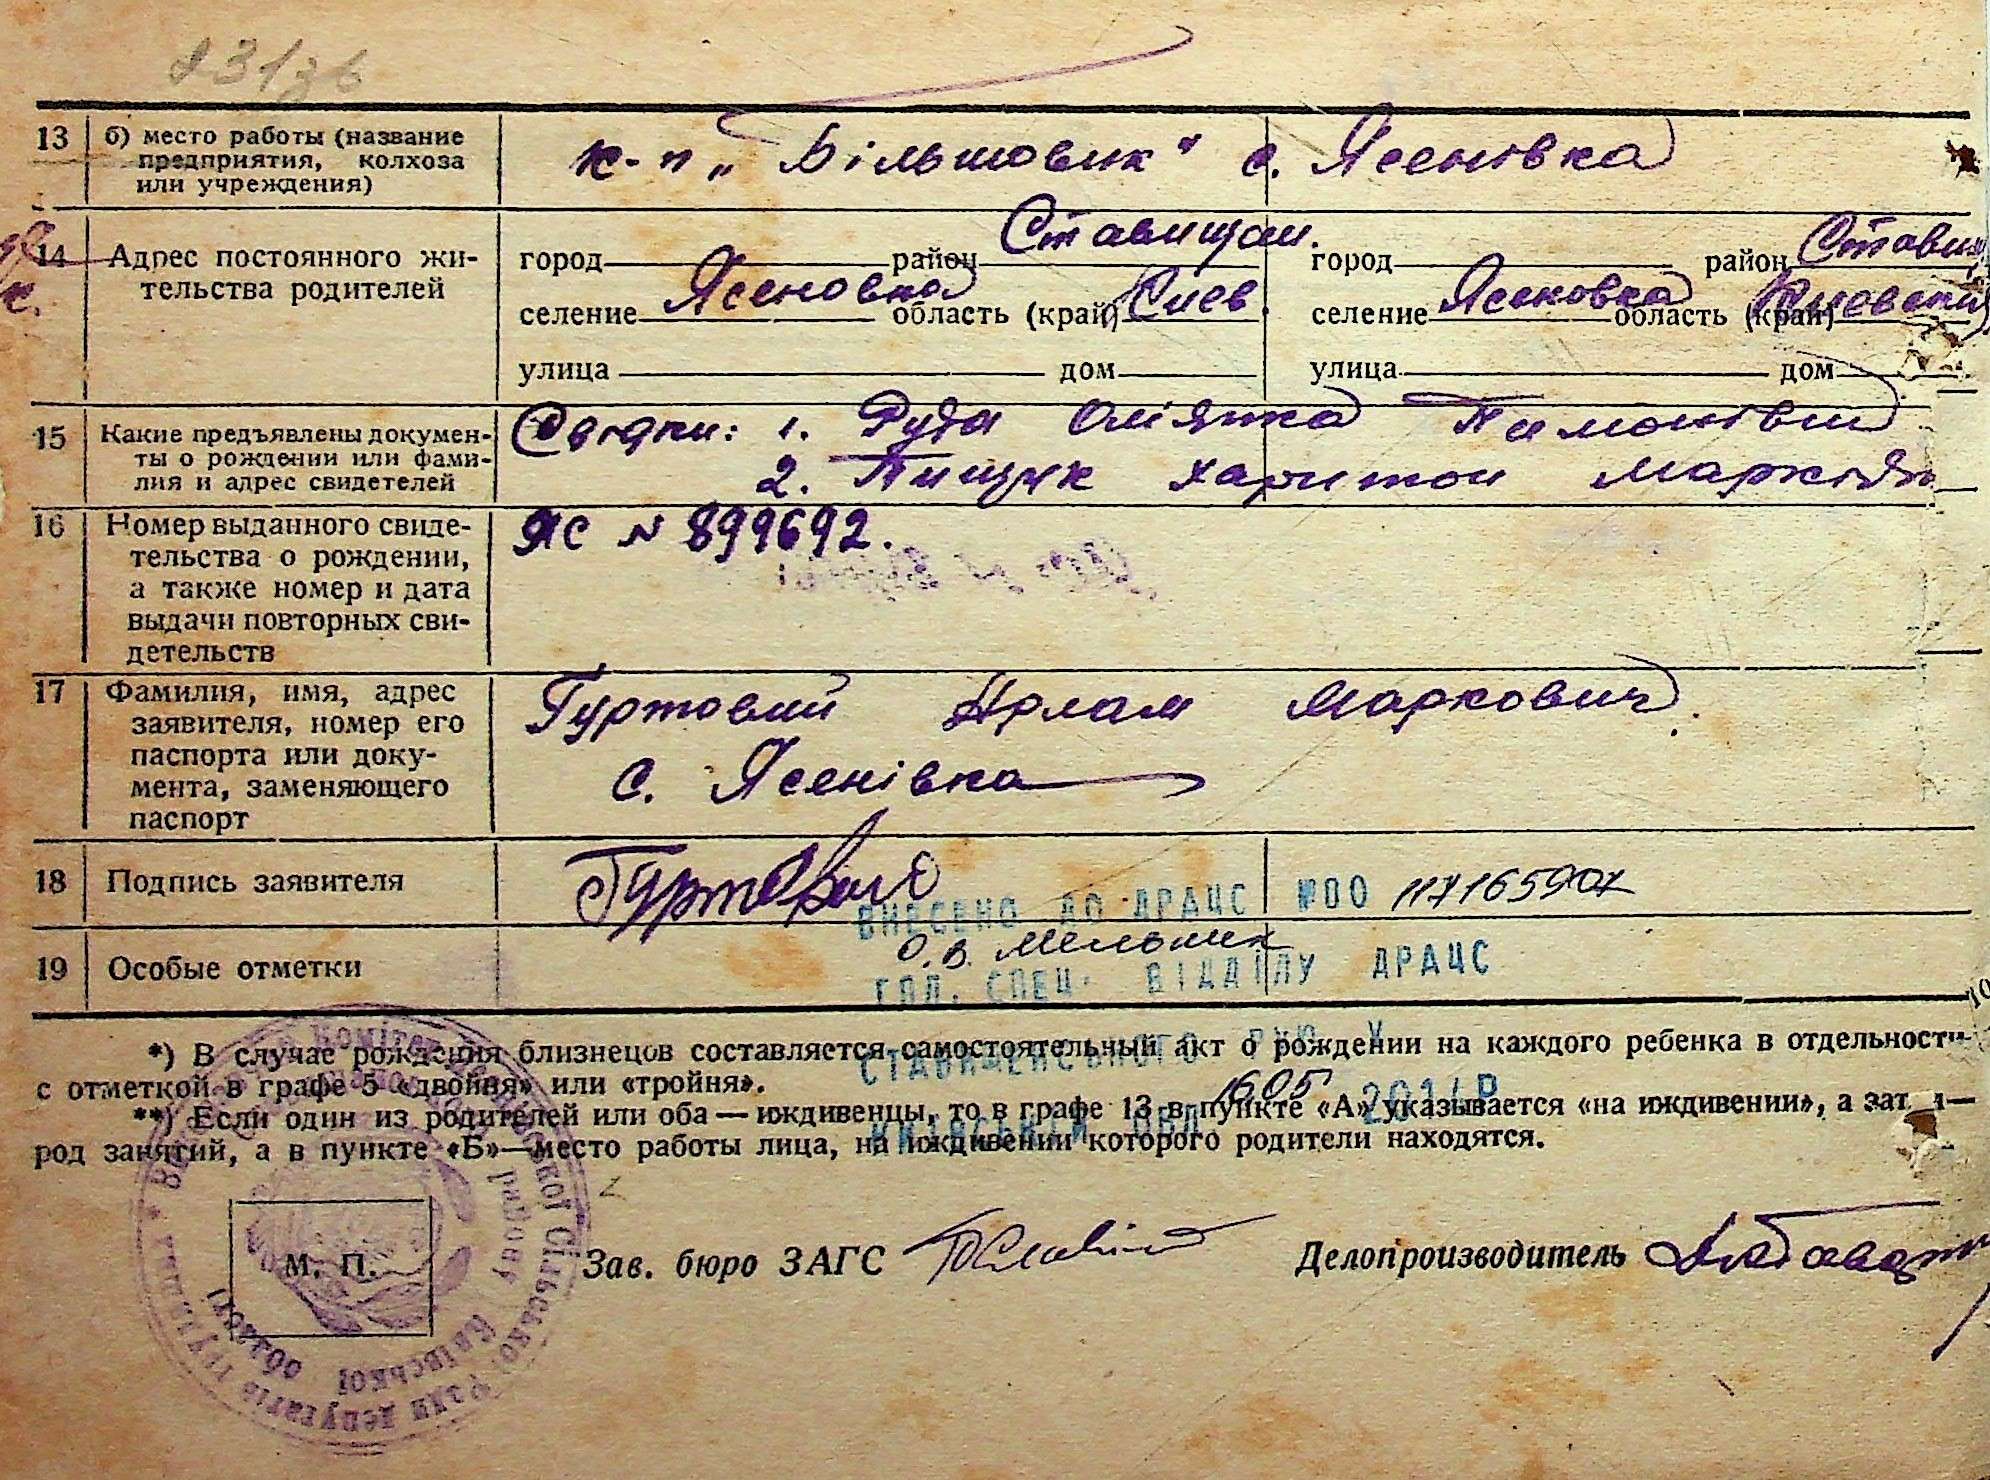 13 б) место работы (название
предприятия, колхоза
или учреждения)
к-п „Більшовик" с. Ясенівка
14 Адрес постоянного жи-
тельства родителей
город район Ставищан. город район Ставищ
селение Ясеновка область (край) Киев. селение Ясеновка область (край) Киевский
улица дом улица дом
15 Какие предъявлены докумен-
ты о рождении или фами-
лия и адрес свидетелей
Свідки: 1. Руда Оміянка
2. Пищук Харитон
16 Номер выданного свиде-
тельства о рождении,
а также номер и дата
выдачи повторных сви-
детельств
ЯС № 899692.
17 Фамилия, имя, адрес
заявителя, номер его
паспорта или доку-
мента, заменяющего
паспорт
Гуртовий Маркович.
с. Ясенівка
18 Подпись заявителя
Гуртовий
ВНЕСЕНО ДО ДРАЦС №00 117165907
19 Особые отметки
О.В. Мельник
ГОЛ. СПЕЦ. ВІДДІЛУ ДРАЦС
СТАВИЩЕНСЬКОГО РУЮ У
КИЇВСЬКІЙ ОБЛ. 1605 2014Р
*) В случае рождения близнецов составляется самостоятельный акт о рождении на каждого ребенка в отдельности
с отметкой в графе 5 «двойня» или «тройня».
**) Если один из родителей или оба — иждивенцы, то в графе 13 в пункте «А» указывается «на иждивении», а зат
род занятий, а в пункте «Б»—место работы лица, на иждивении которого родители находятся.
М. П.
Зав. бюро ЗАГС
Делопроизводитель
сільської Ради депутатів трудящих
району Київської області